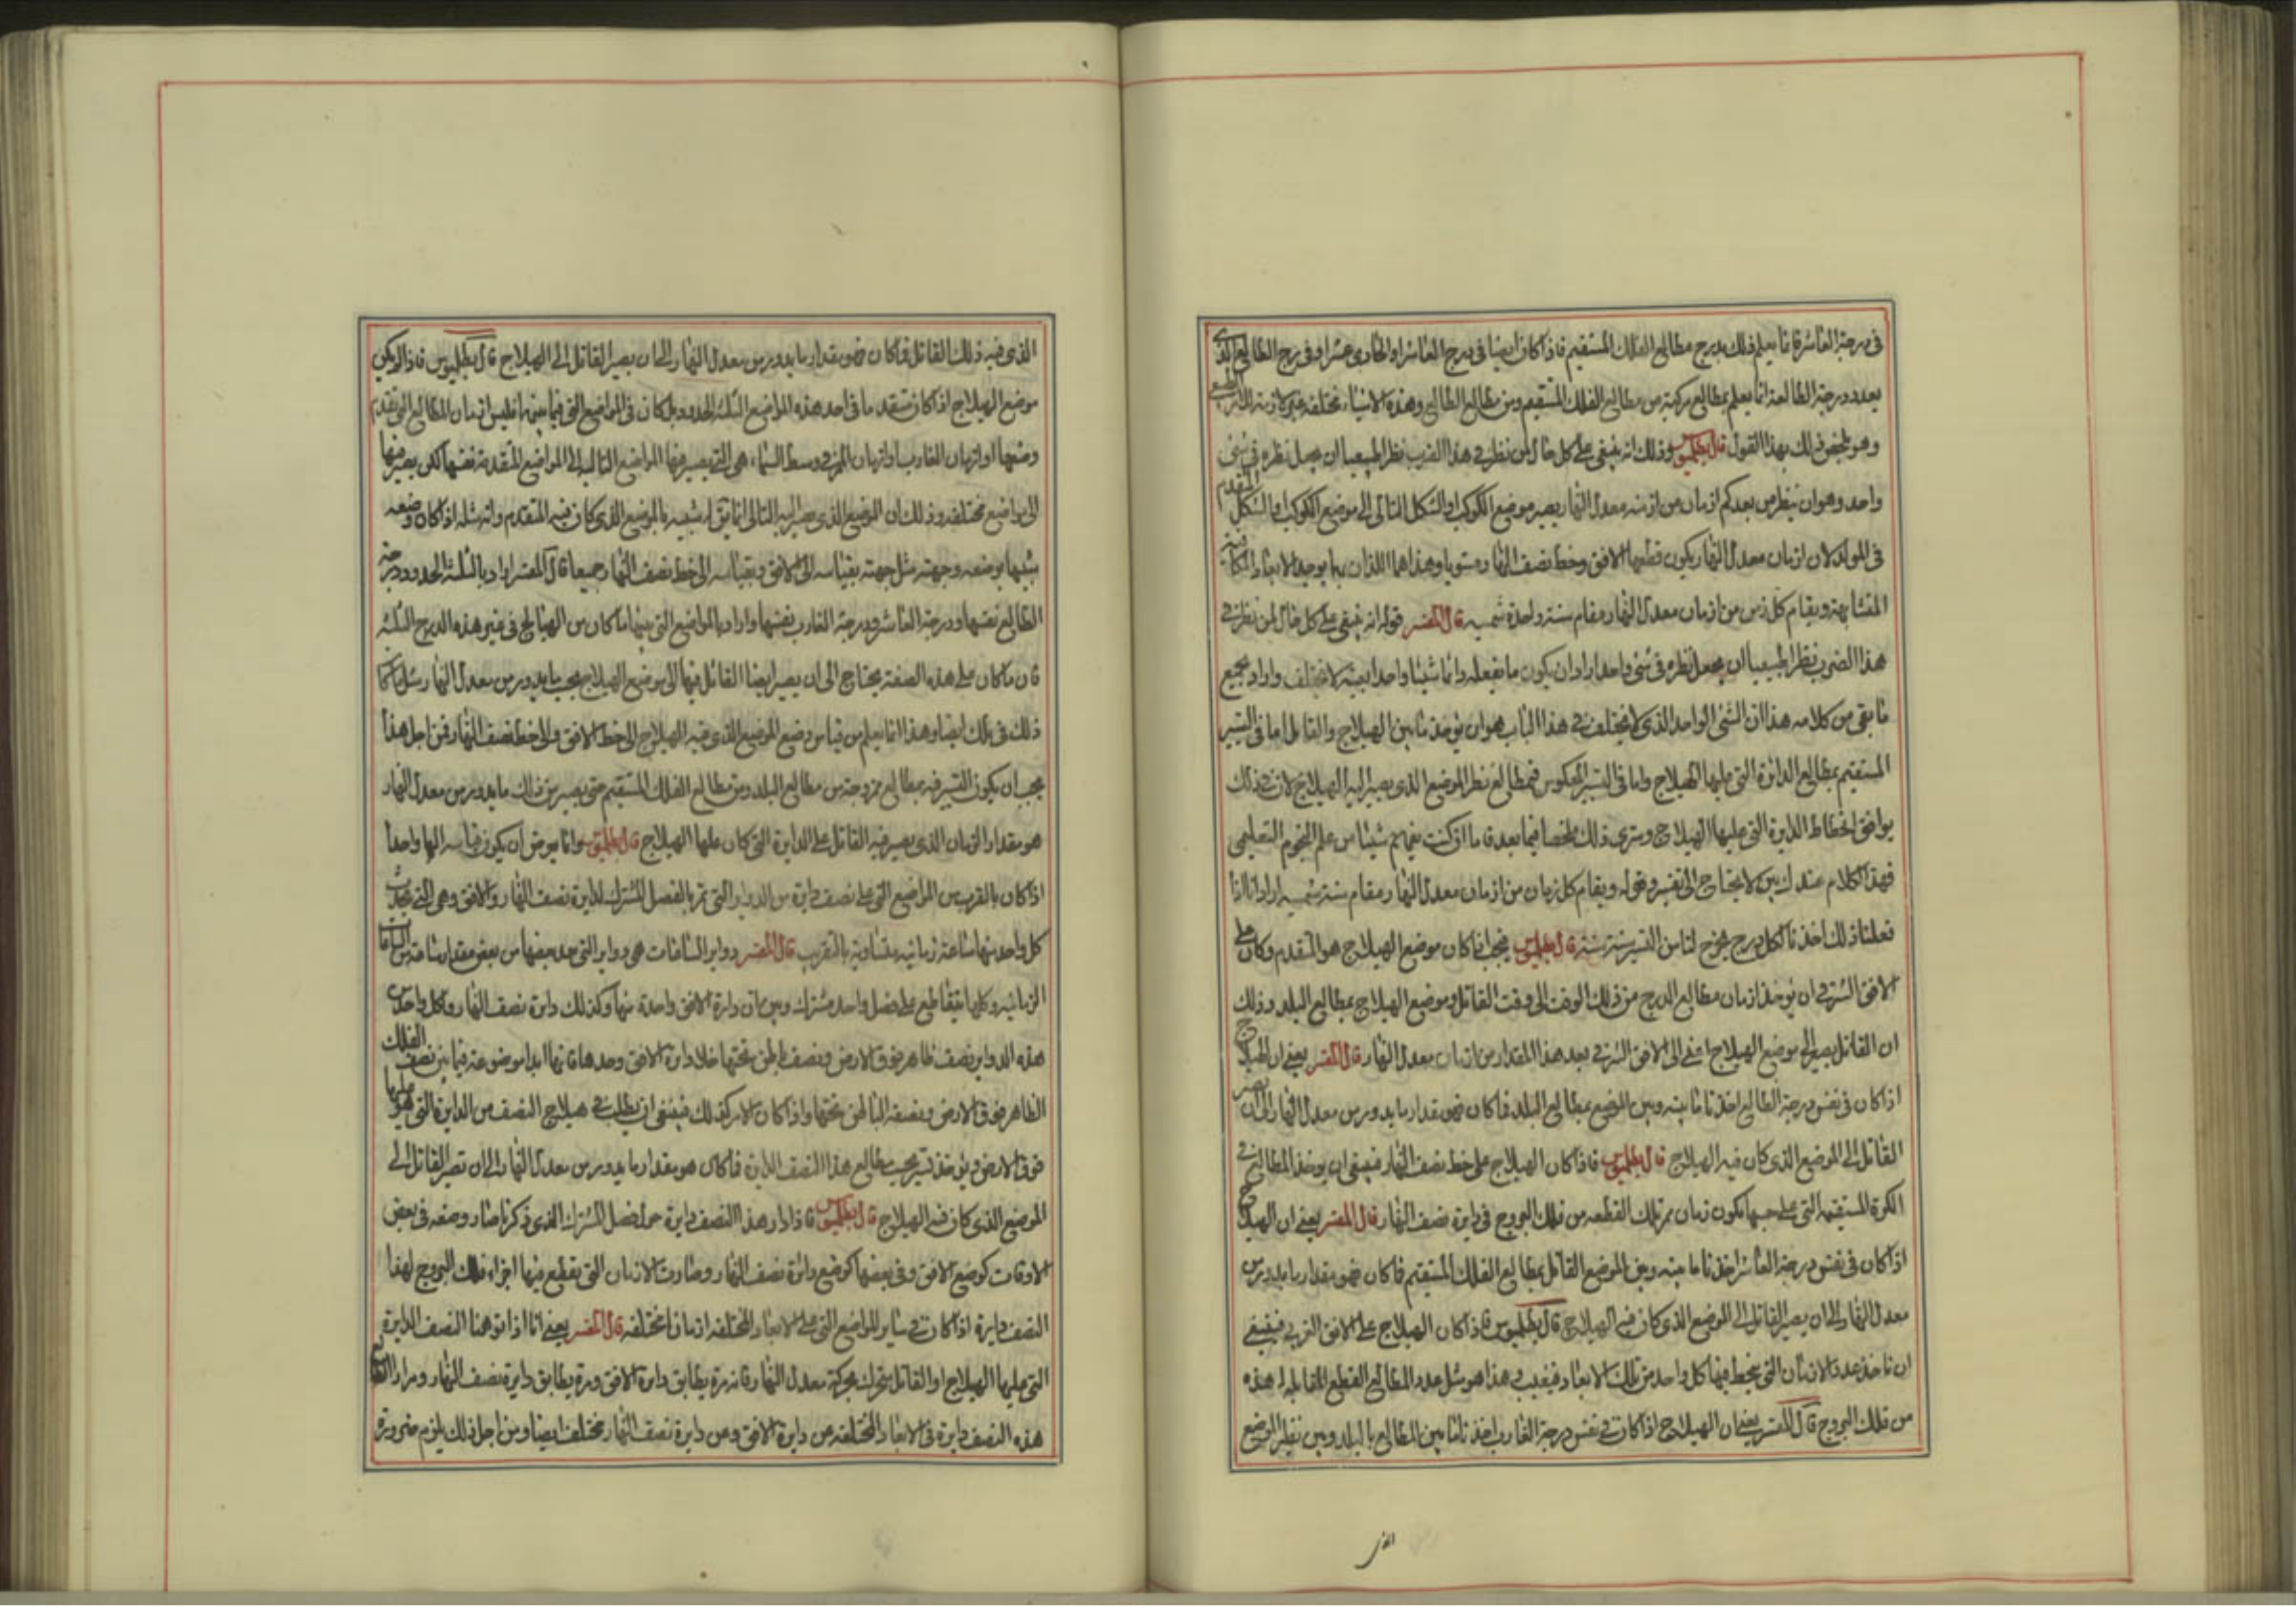 في درجة العاشر فانما يعلم ذلك بدرج مطالع الفلك المستقيم فاذا كان ايضا في درج العاشر او الحادى عشر او في درج الطالع الذى
بعد درجة الطالعة انما يعلم بمطالع مركبة من مطالع الفلك المستقيم ومن مطالع الطالع وهذه الاشياء مختلفة غير
وهو يلخص ذلك بهذا القول قال بطلميوس وذلك انه ينبغى على كل حال لمن نظر في هذا الضرب نظرا طبيعيا ان يجعل نظره في شئ
واحد وهو ان ينظر من بعد كم ازمان من ازمنه معدل النهار يصير موضع الكوكب او الشكل التالى الى موضع الكوكب او الشكل المتقدم
في المولد لان ازمان معدل النهار يكون قطعها الافق وخط نصف النهار مستويا وهذا هما اللذان بهما يوجد الابعاد المكانية
المتشابهة ويقام كل زمن من ازمان معدل النهار مقام سنة واحدة شمسيه قال المفسر قوله انه ينبغى على كل حال لمن نظر في
هذا الضرب نظرا طبيعيا ان يجعل نظره في شئ واحد اراد ان يكون ما يفعله دائما شيئا واحدا بعينه لا يختلف واراد بجميع
ما بقى من كلامه هذا ان الشئ الواحد الذى لا يختلف في هذا الباب هو ان يوخذ ما بين الهيلاج والقاتل اما في التسير
المستقيم بمطالع الدائرة التى عليها الهيلاج واما في التسير المعكوس فبمطالع نظير الموضع الذى يصير اليه الهيلاج لان في ذلك
يوافق انحطاط الدايرة التى عليها الهيلاج وسترى ذلك ملخصا فيما بعد فاما ان كنت تفهم شيئا من علم النجوم التعليمى
فهذا الكلام عندك بين لا يحتاج الى تفسير وقوله ويقام كل زمان من ازمان معدل النهار مقام سنة شمسيه اراد انا اذا
فعلنا ذلك اخذنا لكل درج يخرج لنا من التسير سنة سنة قال بطلميوس فيجب اذا كان موضع الهيلاج هو المتقدم وكان على
الافق الشرقي ان يوخذ ازمان مطالع الدرج من ذلك الوقت الى وقت القاتل وموضع الهيلاج بمطالع البلد وذلك
ان القاتل يصير الى موضع الهيلاج اعنى الى الافق الشرقي بعد هذا المقدار من ازمان معدل النهار قال المفسر يعنى ان الهيلاج
اذا كان في نفس درجة الطالع اخذنا ما بينه وبين الموضع بمطالع البلد فما كان فهو مقدار ما يدور من معدل النهار الى ان يصير
القاتل الى الموضع الذى كان فيه الهيلاج قال بطلميوس فاذا كان الهيلاج على خط نصف النهار فينبغى ان يوخذ المطالع في
الكرة المستقيمة التى على حسبها تكون زمان ممر تلك القطعه من فلك البروج في دايرة نصف النهار قال المفسر يعنى ان الهيلاج
اذا كان في نفس درجة العاشر اخذنا ما بينه وبين الموضع القاتل بمطالع الفلك المستقيم فما كان فهو مقدار ما يدور من
معدل النهار الى ان يصير القاتل الى الموضع الذى كان فيه الهيلاج قال بطلميوس فاذا كان الهيلاج على الافق الغربي فينبغى
ان تاخذ عدد الازمان التى ينحط فيها كل واحد من تلك الابعاد فيغيب وهذا هو مثل عدد المطالع القطع المقابلة لهذه
من فلك البروج قال المفسر يعنى ان الهيلاج اذا كان في نفس درجة الغارب اخذنا ما بين المطالع بالبلد وبين نظير الموضع
الذى
الذى فيه ذلك القاتل فما كان فهو مقدار ما يدور من معدل النهار الى ان يصير القاتل الى الهيلاج قال بطلميوس فاذا لم يكن
موضع الهيلاج اذا كان متقدما في احد هذه المواضع الثلثة الحدود بل كان في المواضع التى فيما بينها فليس ازمان المطالع التى تقدم
وصفها او ازمان الغارب او ازمان الممر في وسط السماء هى التى يصير فيها المواضع التاليه الى المواضع المتقدمة نفسها لكن يصير فيها
الى مواضع مختلفه وذلك ان الموضع الذى يصير اليه التالى انما يق له شبيه بالموضع الذى كان فيه المتقدم وانه مثله اذا كان وضعه
شبيها بوضعه وجهته مثل جهته بقياسه الى الافق وبقياسه الى خط نصف النهار جميعا قال المفسر اراد بالثلثة الحدود درجة
الطالع نفسها ودرجة العاشر ودرجة الغارب نفسها واراد بالمواضع التى بينها ما كان من الهيالج في غير هذه الدرج الثلثة
فان ما كان على هذه الصفة يحتاج الى ان يصير ايضا القاتل فيها الى موضع الهيلاج بحسب ما يدور من معدل النهار مثل ما كنا
ذلك في تلك ايضا وهذا انما يعلم من قياس وضع الموضع الذى فيه الهيلاج الى خط الافق والى خط نصف النهار فمن اجل هذا
يجب ان يكون التسير فيه بمطالع ممزوجة من مطالع البلد ومن مطالع الفلك المستقيم حتى يصير من ذلك ما يدور من معدل النهار
هو مقدار الزمان الذى يصير فيه القاتل على الدايرة التى كان عليها الهيلاج قال بطلميوس وانما يعرض ان يكون قياسه اليها واحدا
اذا كان بالقرب من المواضع التى على نصف دايرة من الدواير التى تمر بالفصل المشترك لدايرة نصف النهار والافق وهى التى يحدث
كل واحد منها ساعة زمانيه متساوية بالتقريب قال المفسر دواير الساعات هى دواير التى حد بعضها من بعض مقدار ساعة من الساعات
الزمانيه وكلها يتقاطع على فصل واحد مشترك وبين ان دايرة الافق واحدة منها وكذلك دايرة نصف النهار وكل واحد من
هذه الدواير نصف ظاهر فوق الارض ونصف باطن تحتها خلا دايرة الافق وحدها فانها ابدا موضوعة فيما بين نصف الفلك
الظاهر فوق الارض ونصفه الباطن تحتها واذا كان الامر كذلك فينبغى ان يطلب في هيلاج النصف من الدايرة التى هو عليها
فوق الارض ويوخذ تسير بحسب مطالع هذا النصف الدايرة فما كان هو مقدار ما يدور من معدل النهار الى ان تصير القاتل الى
الموضع الذى كان فيه الهيلاج قال بطلميوس فاذا دار هذا النصف دايرة حول الفصل المشترك الذى ذكرنا صار وضعه في بعض
الاوقات كوضع الافق وفى بعضها كوضع دائرة نصف النهار وصارت الازمان التى يقطع فيها اجزاء فلك البروج لهذا
النصف دايرة اذا كان في ساير المواضع التى على الابعاد المختلفه ازمانا مختلفه قال المفسر يعنى انا اذا توهمنا النصف الدايرة
التى عليها الهيلاج او القاتل يتحرك بحركة معدل النهار فانه مرة يطابق دايرة الافق ومرة يطابق دايرة نصف النهار ومرار
هذه النصف دايرة في الابعاد المختلفه من دايرة الافق ومن دايرة نصف النهار مختلف ايضا ومن اجل ذلك يلزم ضرورة